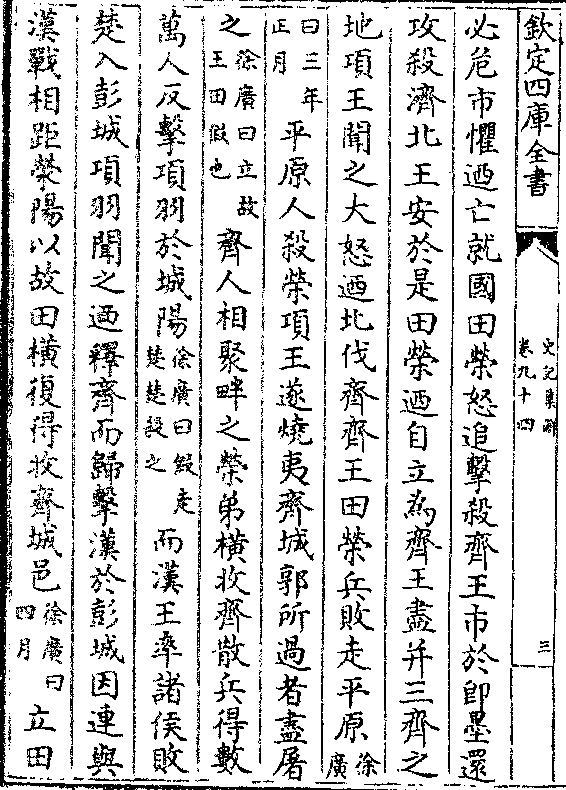 欽定四庫全書
史記集解
卷九十四
三
必危市懼迺亡就國田榮怒追擊殺齊王市於即墨還
攻殺濟北王安於是田榮迺自立為齊王盡并三齊之
地項王聞之大怒迺北伐齊齊王田榮兵敗走平原徐廣
曰三年正月平原人殺榮項王遂燒夷齊城郭所過者盡屠
之徐廣曰立故王田假也齊人相聚畔之榮弟橫收齊散兵得數
萬人反擊項羽於城陽徐廣曰假走楚楚殺之而漢王率諸侯敗
楚入彭城項羽聞之迺釋齊而歸擊漢於彭城因連與
漢戰相距滎陽以故田橫復得收齊城邑徐廣曰四月立田